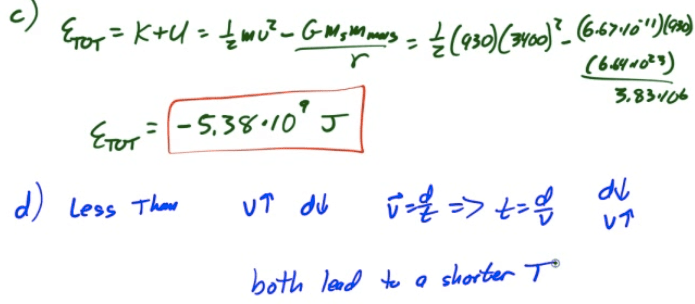 c) ε_TOT = K+U = ½mv² - G M_s m_mars / r = ½(930)(3400)² - (6.67·10⁻¹¹)(930)(6.64·10²³) / 3.83·10⁶
ε_TOT = -5.38·10⁹ J
d) Less Than v↑ d↓ v⃗ = d/t => t = d/v d↓ v↑
both lead to a shorter T